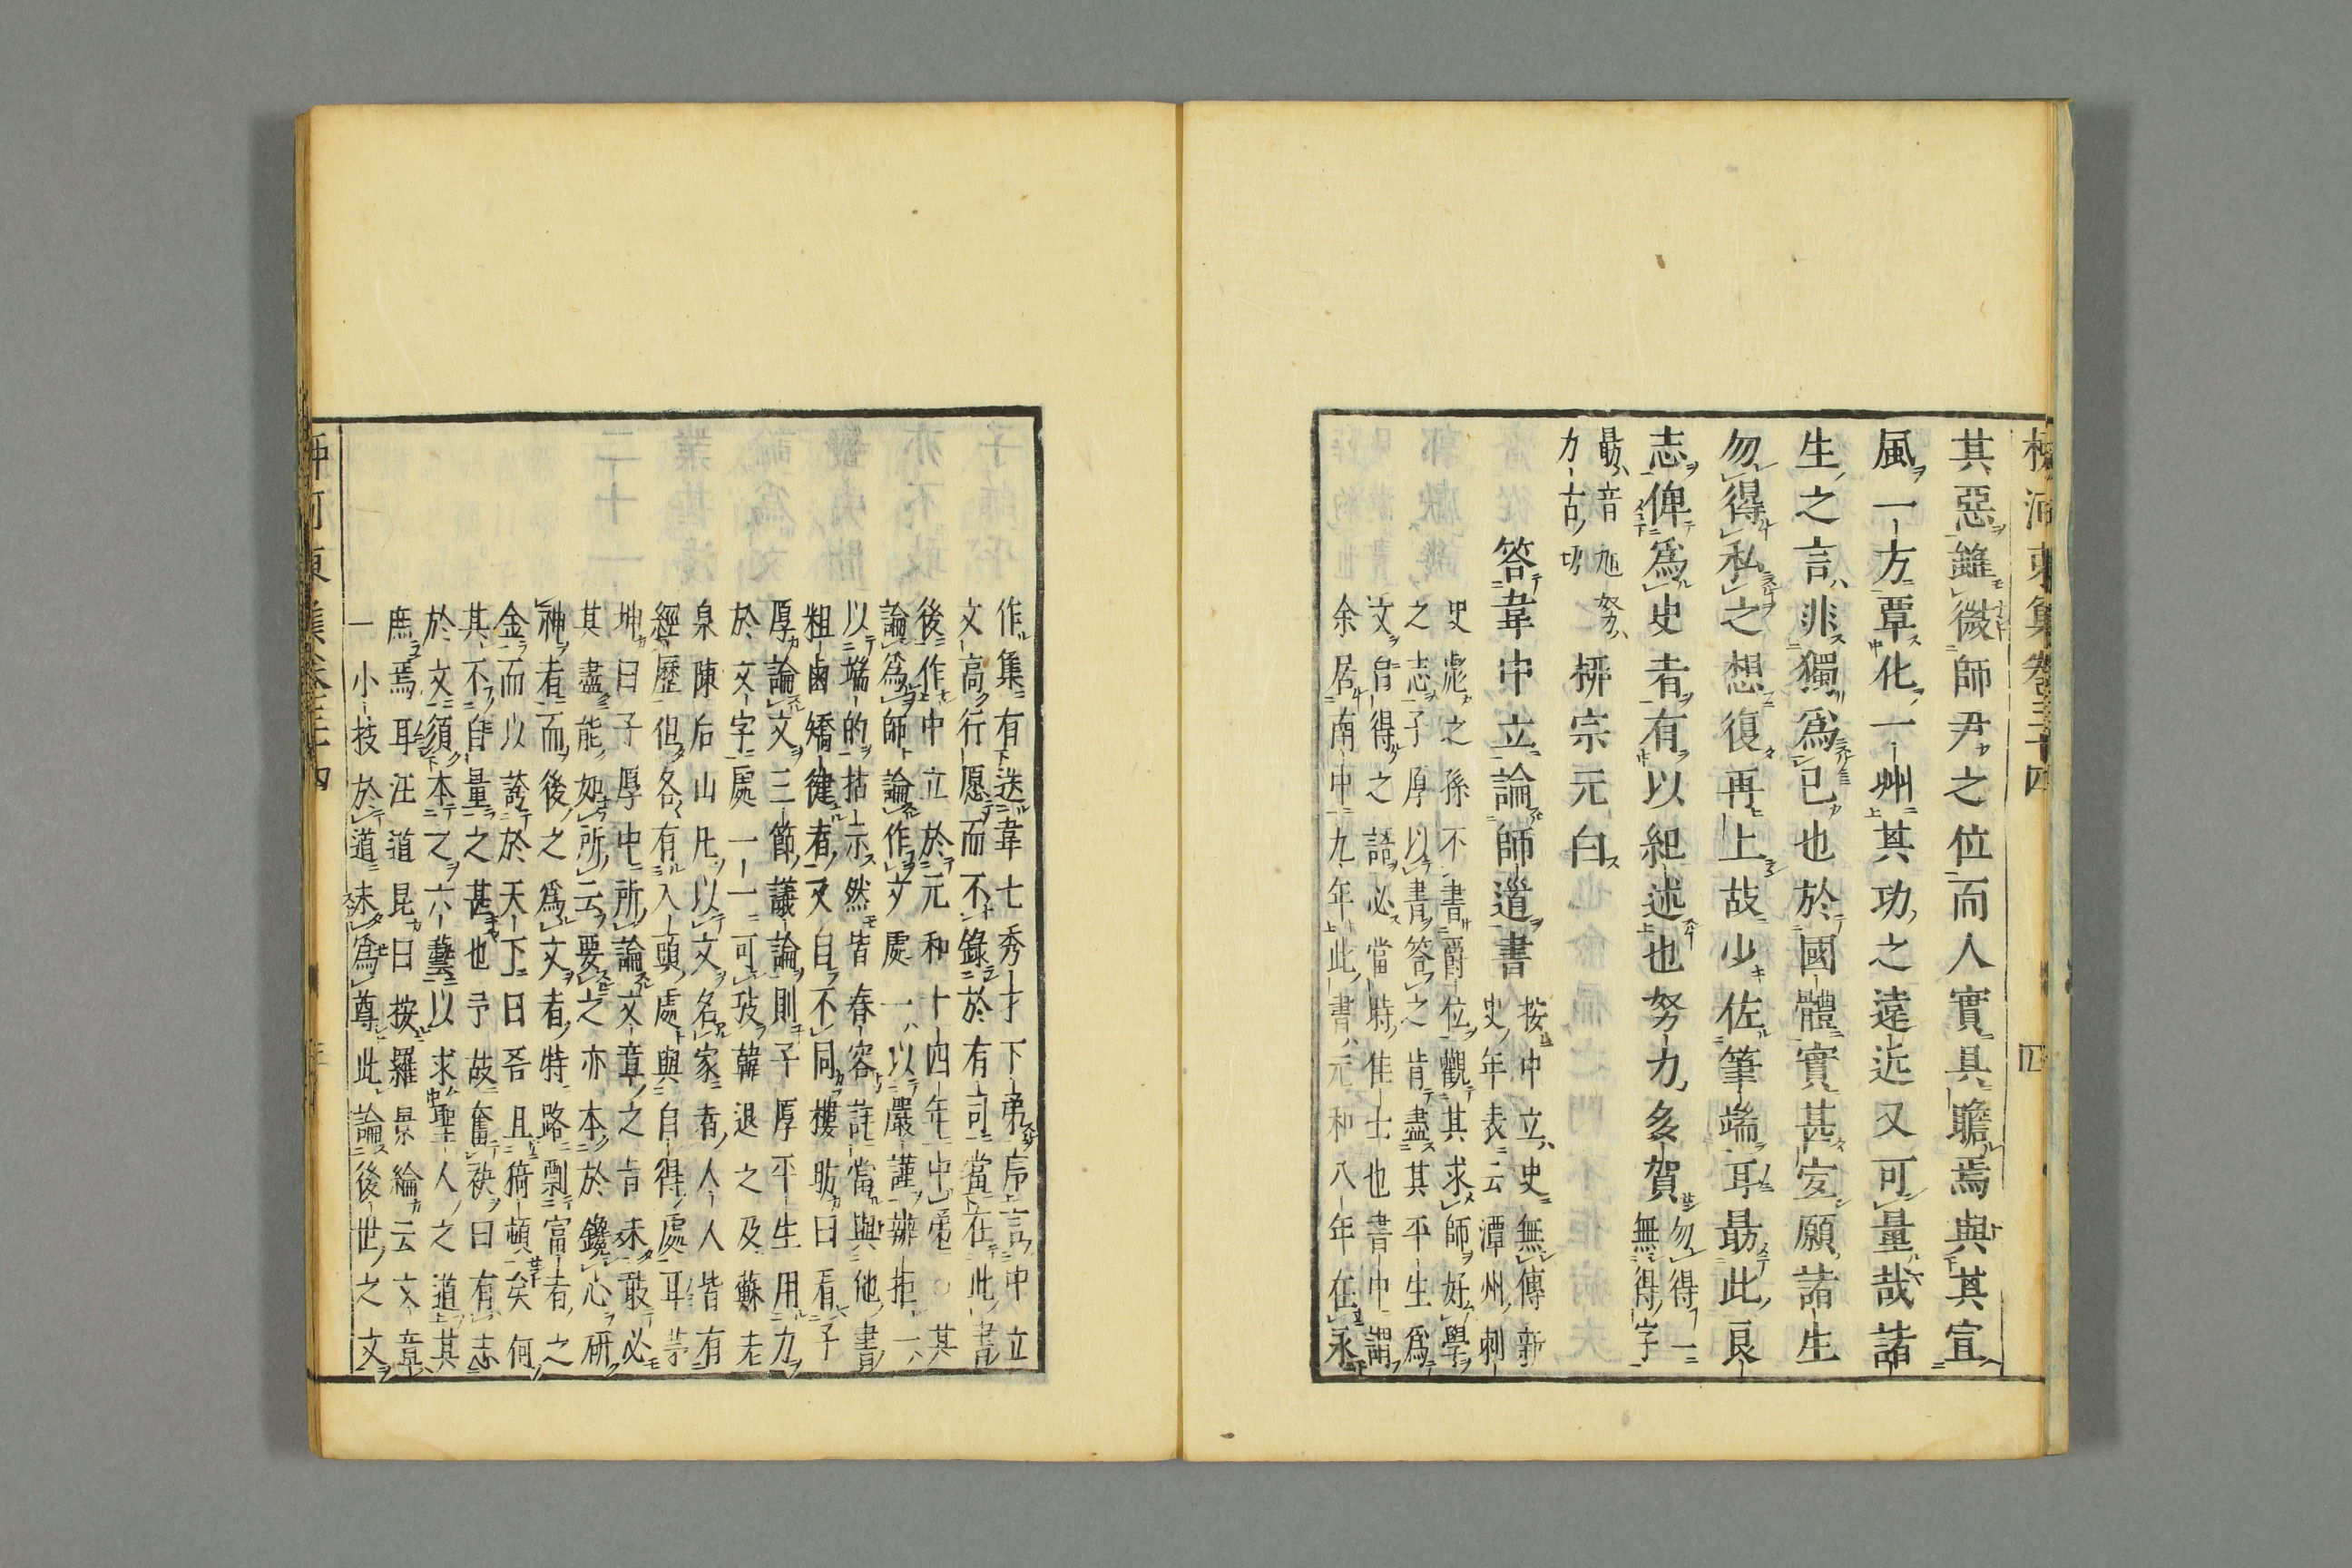 柳河東集卷三十四
四
其惡雖微師尹之位而人實具瞻焉與其宣
風一方覃化一州其功之遠近又可量哉諸
生之言非獨爲已也於國體實甚宐願諸生
勿得私之想復再上故少佐筆端耳勗此良
志俾爲史者有以紀述也努力多賀勿得一
無得字
勗音旭努
力古切
柳宗元白
答韋中立論師道書
按中立史無傳新
史年表云潭州刺
史彪之孫不書爵位觀其求師好學
之志子厚以書答之肯盡其平生爲
文眞得之語必當時佳士也書中謂
余居南中九年此書元和八年在永
作集有送韋七秀才下弟序言中立
文高行愿而不錄於有司當在此書
後作中立於元和十四年中第○其
論爲師論作文處一以嚴謹辧拒一
以端的指示然皆春容詳當與他書
粗鹵矯健者又自不同樓昉曰看子
厚論文三節議論則子厚平生用力
於文字處一一可攷韓退之及蘇老
泉陳后山凡以文名家者人人皆有
經歷但各有入頭處與自得處耳茅
坤曰子厚中所論文章之旨未敢必
其盡能如所云要之亦本於鑱心研
神者而後之爲文者特路剽富者之
金而以誇於天下曰吾且猗頓矣何
其不自量之甚也予故奮袂曰有志
於文須本之六藝以求聖人之道其
庶焉耳汪道昆曰按羅景綸云文章
一小技於道未爲尊此論後世之文
柳河東集卷三十四